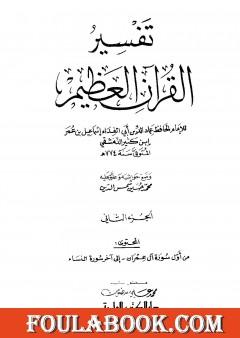 تفسير
القرآن العظيم
للإمام الحافظ عماد الدين أبي الفداء إسماعيل بن عمر
ابن كثير الدمشقي
المتوفى سنة ٧٧٤ هـ
وضع حواشيه وعلق عليه
محمد حسين شمس الدين
الجزء الثاني
المحتوى:
من أول سورة آل عمران - إلى آخر سورة النساء
دار الكتب العلمية
FOULABOOK.COM